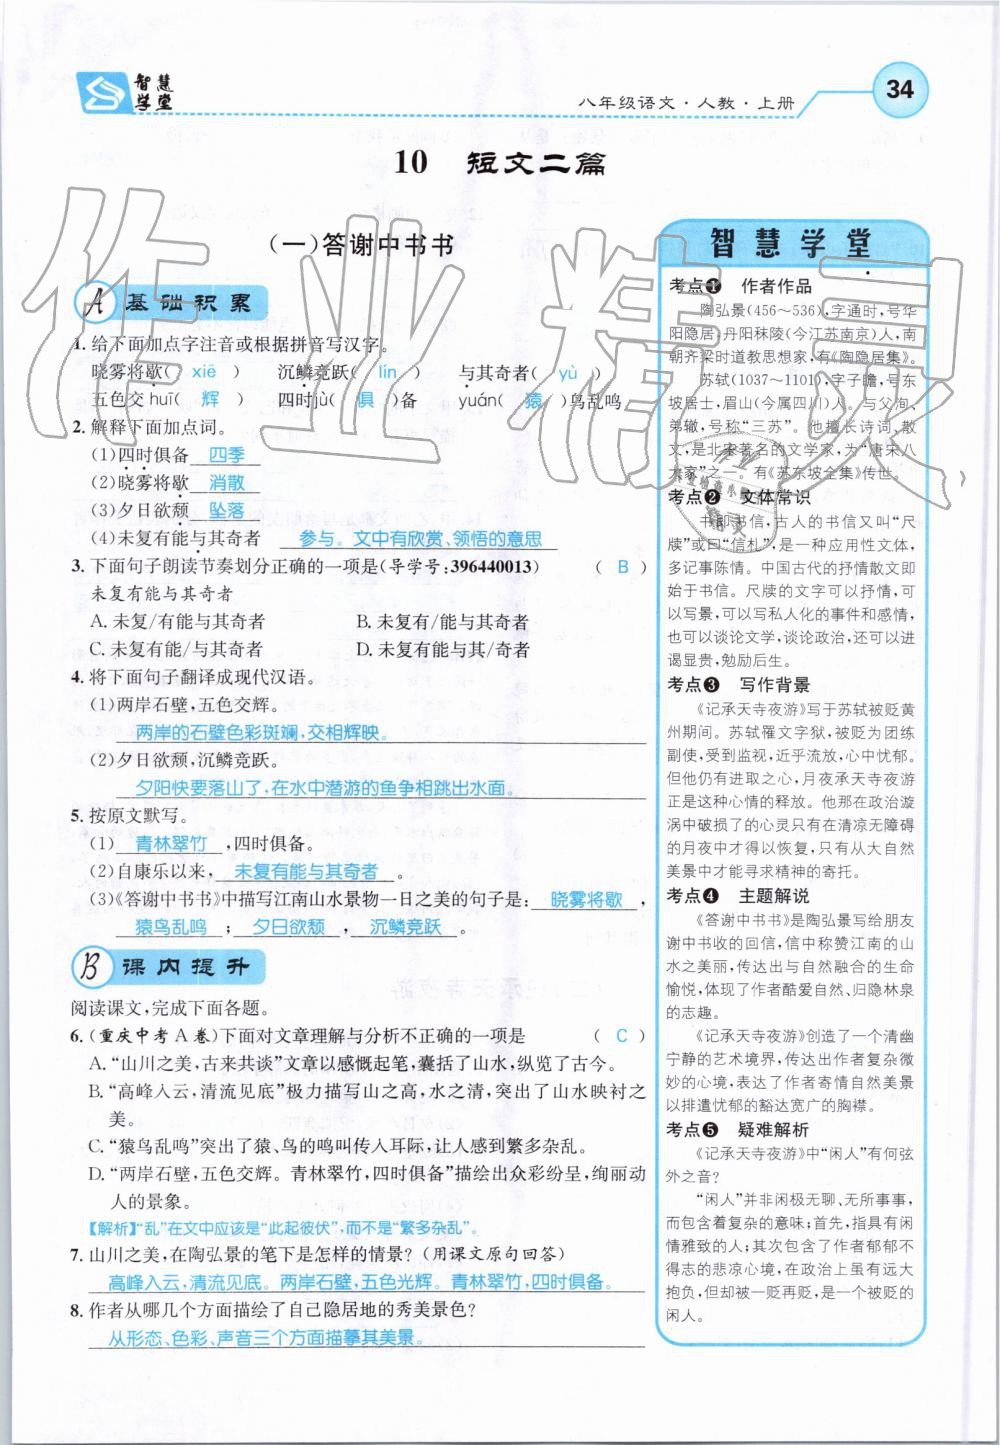 智慧学堂
八年级语文·人教·上册
34
10 短文二篇
(一)答谢中书书
A 基础积累
1.给下面加点字注音或根据拼音写汉字。
晓雾将歇( xiē ) 沉鳞竞跃( lín ) 与其奇者( yù )
五色交 huī( 辉 ) 四时jù( 俱 )备 yuán( 猿 )鸟乱鸣
2.解释下面加点词。
(1)四时俱备 四季
(2)晓雾将歇 消散
(3)夕日欲颓 坠落
(4)未复有能与其奇者 参与。文中有欣赏、领悟的意思
3.下面句子朗读节奏划分正确的一项是(导学号:396440013) ( B )
未复有能与其奇者
A.未复/有能与其奇者 B.未复有/能与其奇者
C.未复有能/与其奇者 D.未复有能与/其奇者
4.将下面句子翻译成现代汉语。
(1)两岸石壁,五色交辉。
两岸的石壁色彩斑斓,交相辉映。
(2)夕日欲颓,沉鳞竞跃。
夕阳快要落山了,在水中潜游的鱼争相跳出水面。
5.按原文默写。
(1) 青林翠竹 ,四时俱备。
(2)自康乐以来, 未复有能与其奇者 。
(3)《答谢中书书》中描写江南山水景物一日之美的句子是: 晓雾将歇 ,
猿鸟乱鸣 ; 夕日欲颓 , 沉鳞竞跃 。
B 课内提升
阅读课文,完成下面各题。
6.(重庆中考 A 卷)下面对文章理解与分析不正确的一项是 ( C )
A.“山川之美,古来共谈”文章以感慨起笔,囊括了山水,纵览了古今。
B.“高峰入云,清流见底”极力描写山之高,水之清,突出了山水映衬之
美。
C.“猿鸟乱鸣”突出了猿、鸟的鸣叫传入耳际,让人感到繁多杂乱。
D.“两岸石壁,五色交辉。青林翠竹,四时俱备”描绘出众彩纷呈,绚丽动
人的景象。
【解析】“乱”在文中应该是“此起彼伏”,而不是“繁多杂乱”。
7.山川之美,在陶弘景的笔下是怎样的情景?(用课文原句回答)
高峰入云,清流见底。两岸石壁,五色光辉。青林翠竹,四时俱备。
8.作者从哪几个方面描绘了自己隐居地的秀美景色?
从形态、色彩、声音三个方面描摹其美景。
智慧学堂
考点❶ 作者作品
陶弘景(456－536),字通时,号华
阳隐居,丹阳秣陵(今江苏南京)人,南
朝齐梁时道教思想家,有《陶隐居集》。
苏轼(1037－1101),字子瞻,号东
坡居士,眉山(今属四川)人。与父洵、
弟辙,号称“三苏”。他擅长诗词、散
文,是北宋著名的文学家,为“唐宋八
大家”之一。有《苏东坡全集》传世。
考点❷ 文体常识
书即书信,古人的书信又叫“尺
牍”或曰“信札”,是一种应用性文体,
多记事陈情。中国古代的抒情散文即
始于书信。尺牍的文字可以抒情,可
以写景,可以写私人化的事件和感情,
也可以谈论文学,谈论政治,还可以进
谒显贵,勉励后生。
考点❸ 写作背景
《记承天寺夜游》写于苏轼被贬黄
州期间。苏轼罹文字狱,被贬为团练
副使,受到监视,近乎流放,心中忧郁。
但他仍有进取之心,月夜承天寺夜游
正是这种心情的释放。他那在政治漩
涡中破损了的心灵只有在清凉无障碍
的月夜中才得以恢复,只有从大自然
美景中才能寻求精神的寄托。
考点❹ 主题解说
《答谢中书书》是陶弘景写给朋友
谢中书收的回信,信中称赞江南的山
水之美丽,传达出与自然融合的生命
愉悦,体现了作者酷爱自然、归隐林泉
的志趣。
《记承天寺夜游》创造了一个清幽
宁静的艺术境界,传达出作者复杂微
妙的心境,表达了作者寄情自然美景
以排遣忧郁的豁达宽广的胸襟。
考点❺ 疑难解析
《记承天寺夜游》中“闲人”有何弦
外之音?
“闲人”并非闲极无聊、无所事事,
而是包含着复杂的意味;首先,指具有闲
情雅致的人;其次包含了作者郁郁不
得志的悲凉心境,在政治上虽有远大
抱负,但却被一贬再贬,是一个被贬的
闲人。
作业精灵